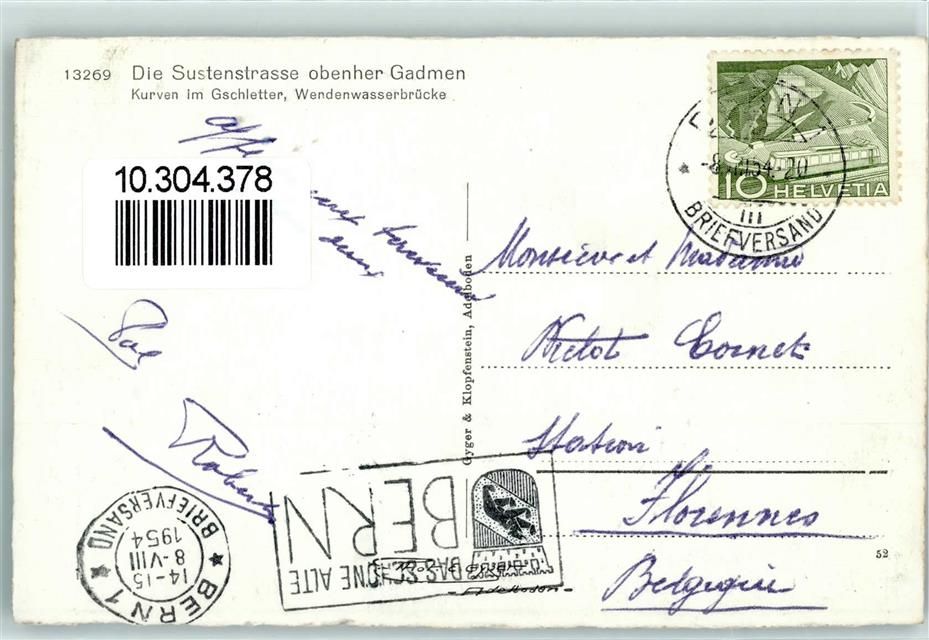 13269 Die Sustenstrasse obenher Gadmen
Kurven im Gschletter, Wendenwasserbrücke
10.304.378
10 HELVETIA
-8. 54.-20
III
BRIEFVERSAND
Gyger & Klopfenstein, Adelboden
Monsieur et Madame
Cornet
Station
Florennes
Belgique
Robert
BERN 1
14-15
8-VIII
1954
BRIEFVERSAND
BERN
DAS SCHÖNE ALTE
Adelboden
52